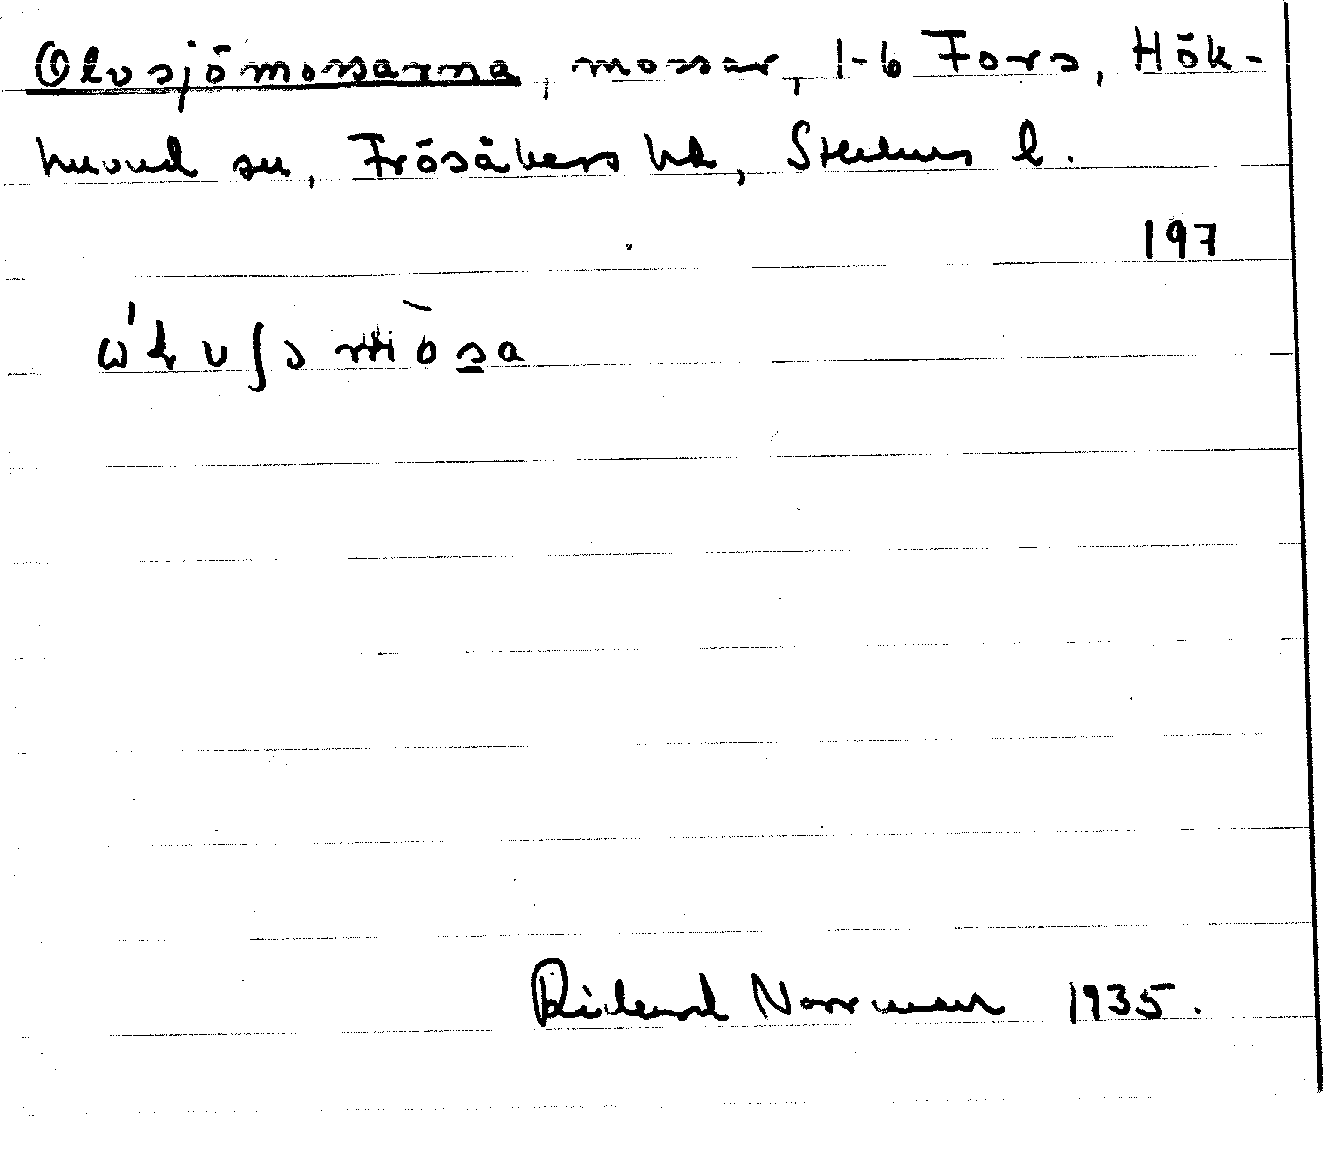 Olvsjömossarna, mossar, 1-6 Fors, Hök-
huvud sn, Frösåkers hd, Sthlms l.
197
Rickard Norrman 1935.